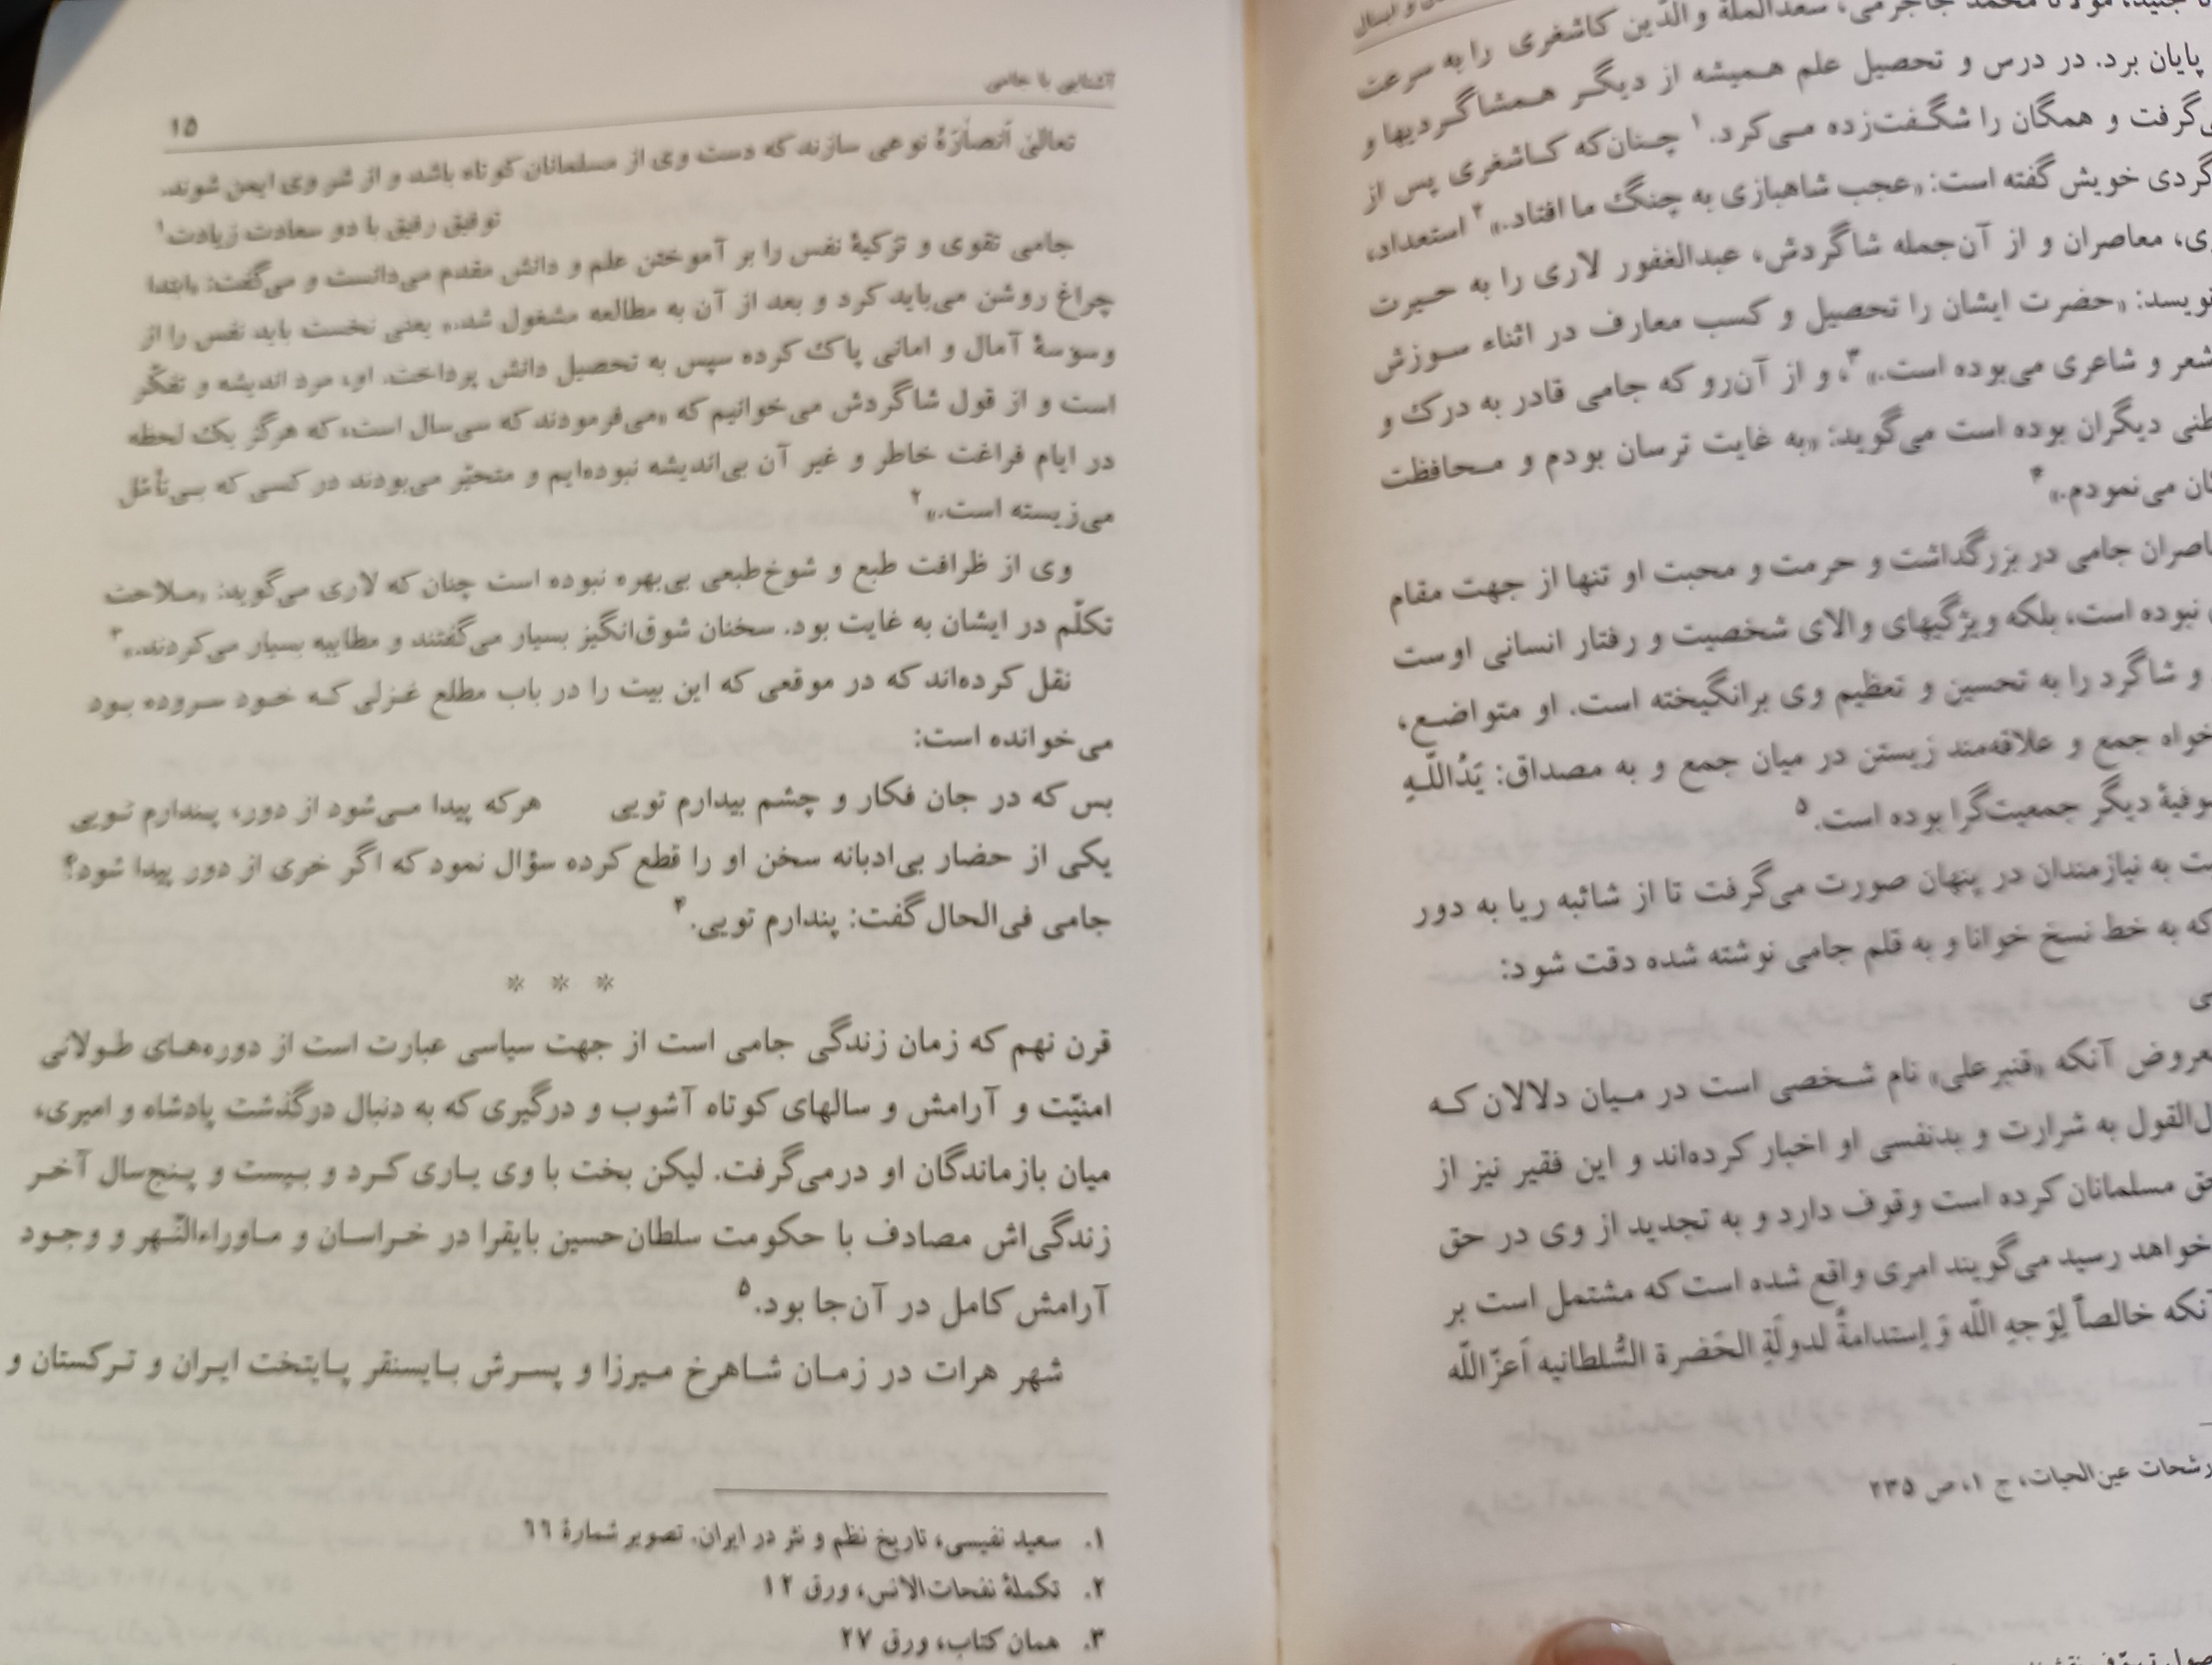 پایان برد. در درس و تحصیل علم همیشه از دیگر همشاگردیها و
گرفت و همگان را شگفت‌زده می‌کرد.۱ چنان‌که کاشغری پس از
گردی خویش گفته است: «عجب شاهبازی به چنگ ما افتاد.»۲ استعداد،
معاصران و از آن‌جمله شاگردش، عبدالغفور لاری را به حیرت
«حضرت ایشان را تحصیل و کسب معارف در اثناء سوزش
شعر و شاعری می‌بوده است.»۳، و از آن‌رو که جامی قادر به درک و
دیگران بوده است می‌گوید: «به غایت ترسان بودم و محافظت
می‌نمودم.»۴
جامی در بزرگداشت و حرمت و محبت او تنها از جهت مقام
نبوده است، بلکه ویژگیهای والای شخصیت و رفتار انسانی اوست
و شاگرد را به تحسین و تعظیم وی برانگیخته است. او متواضع،
خواه جمع و علاقه‌مند زیستن در میان جمع و به مصداق: یَدُاللّهِ
دیگر جمعیت‌گرا بوده است.۵
به نیازمندان در پنهان صورت می‌گرفت تا از شائبه ریا به دور
که به خط نسخ خوانا و به قلم جامی نوشته شده دقت شود:
آنکه «قنبرعلی» نام شخصی است در میان دلالان که
القول به شرارت و بدنفسی او اخبار کرده‌اند و این فقیر نیز از
حق مسلمانان کرده است وقوف دارد و به تجدید از وی در حق
خواهد رسید می‌گویند امری واقع شده است که مشتمل است بر
خالصاً لِوَجهِ اللّه وَ اِستدامةً لدولَةِ الحَضرة السُّلطانیه اَعزّاللّه
رشحات عین‌الحیات، ج ۱، ص ۲۳۵
آشنایی با جامی
۱۵
تعالیٰ اَنصارَهُ نوعی سازند که دست وی از مسلمانان کوتاه باشد و از شر وی ایمن شوند.
توفیق رفیق با دو سعادت زیادت۱
جامی تقوی و تزکیهٔ نفس را بر آموختن علم و دانش مقدم می‌دانست و می‌گفت: «ابتدا
چراغ روشن می‌باید کرد و بعد از آن به مطالعه مشغول شد.» یعنی نخست باید نفس را از
وسوسهٔ آمال و امانی پاک کرده سپس به تحصیل دانش پرداخت. او، مرد اندیشه و تفکّر
است و از قول شاگردش می‌خوانیم که «می‌فرمودند که سی‌سال است، که هرگز یک لحظه
در ایام فراغت خاطر و غیر آن بی‌اندیشه نبوده‌ایم و متحیّر می‌بودند در کسی که بی‌تأمّل
می‌زیسته است.»۲
وی از ظرافت طبع و شوخ‌طبعی بی‌بهره نبوده است چنان که لاری می‌گوید: «ملاحت
تکلّم در ایشان به غایت بود. سخنان شوق‌انگیز بسیار می‌گفتند و مطایبه بسیار می‌کردند.»۳
نقل کرده‌اند که در موقعی که این بیت را در باب مطلع غزلی که خود سروده بود
می‌خوانده است:
بس که در جان فکار و چشم بیدارم تویی هرکه پیدا می‌شود از دور، پندارم تویی
یکی از حضار بی‌ادبانه سخن او را قطع کرده سؤال نمود که اگر خری از دور پیدا شود؟
جامی فی‌الحال گفت: پندارم تویی.۴
* * *
قرن نهم که زمان زندگی جامی است از جهت سیاسی عبارت است از دوره‌های طولانی
امنیّت و آرامش و سالهای کوتاه آشوب و درگیری که به دنبال درگذشت پادشاه و امیری،
میان بازماندگان او درمی‌گرفت. لیکن بخت با وی یاری کرد و بیست و پنج‌سال آخر
زندگی‌اش مصادف با حکومت سلطان‌حسین بایقرا در خراسان و ماوراءالنّهر و وجود
آرامش کامل در آن‌جا بود.۵
شهر هرات در زمان شاهرخ میرزا و پسرش بایسنقر پایتخت ایران و ترکستان و
۱. سعید نفیسی، تاریخ نظم و نثر در ایران. تصویر شمارهٔ ۶۶
۲. تکملهٔ نفحات‌الانس، ورق ۱۲
۳. همان کتاب، ورق ۲۷